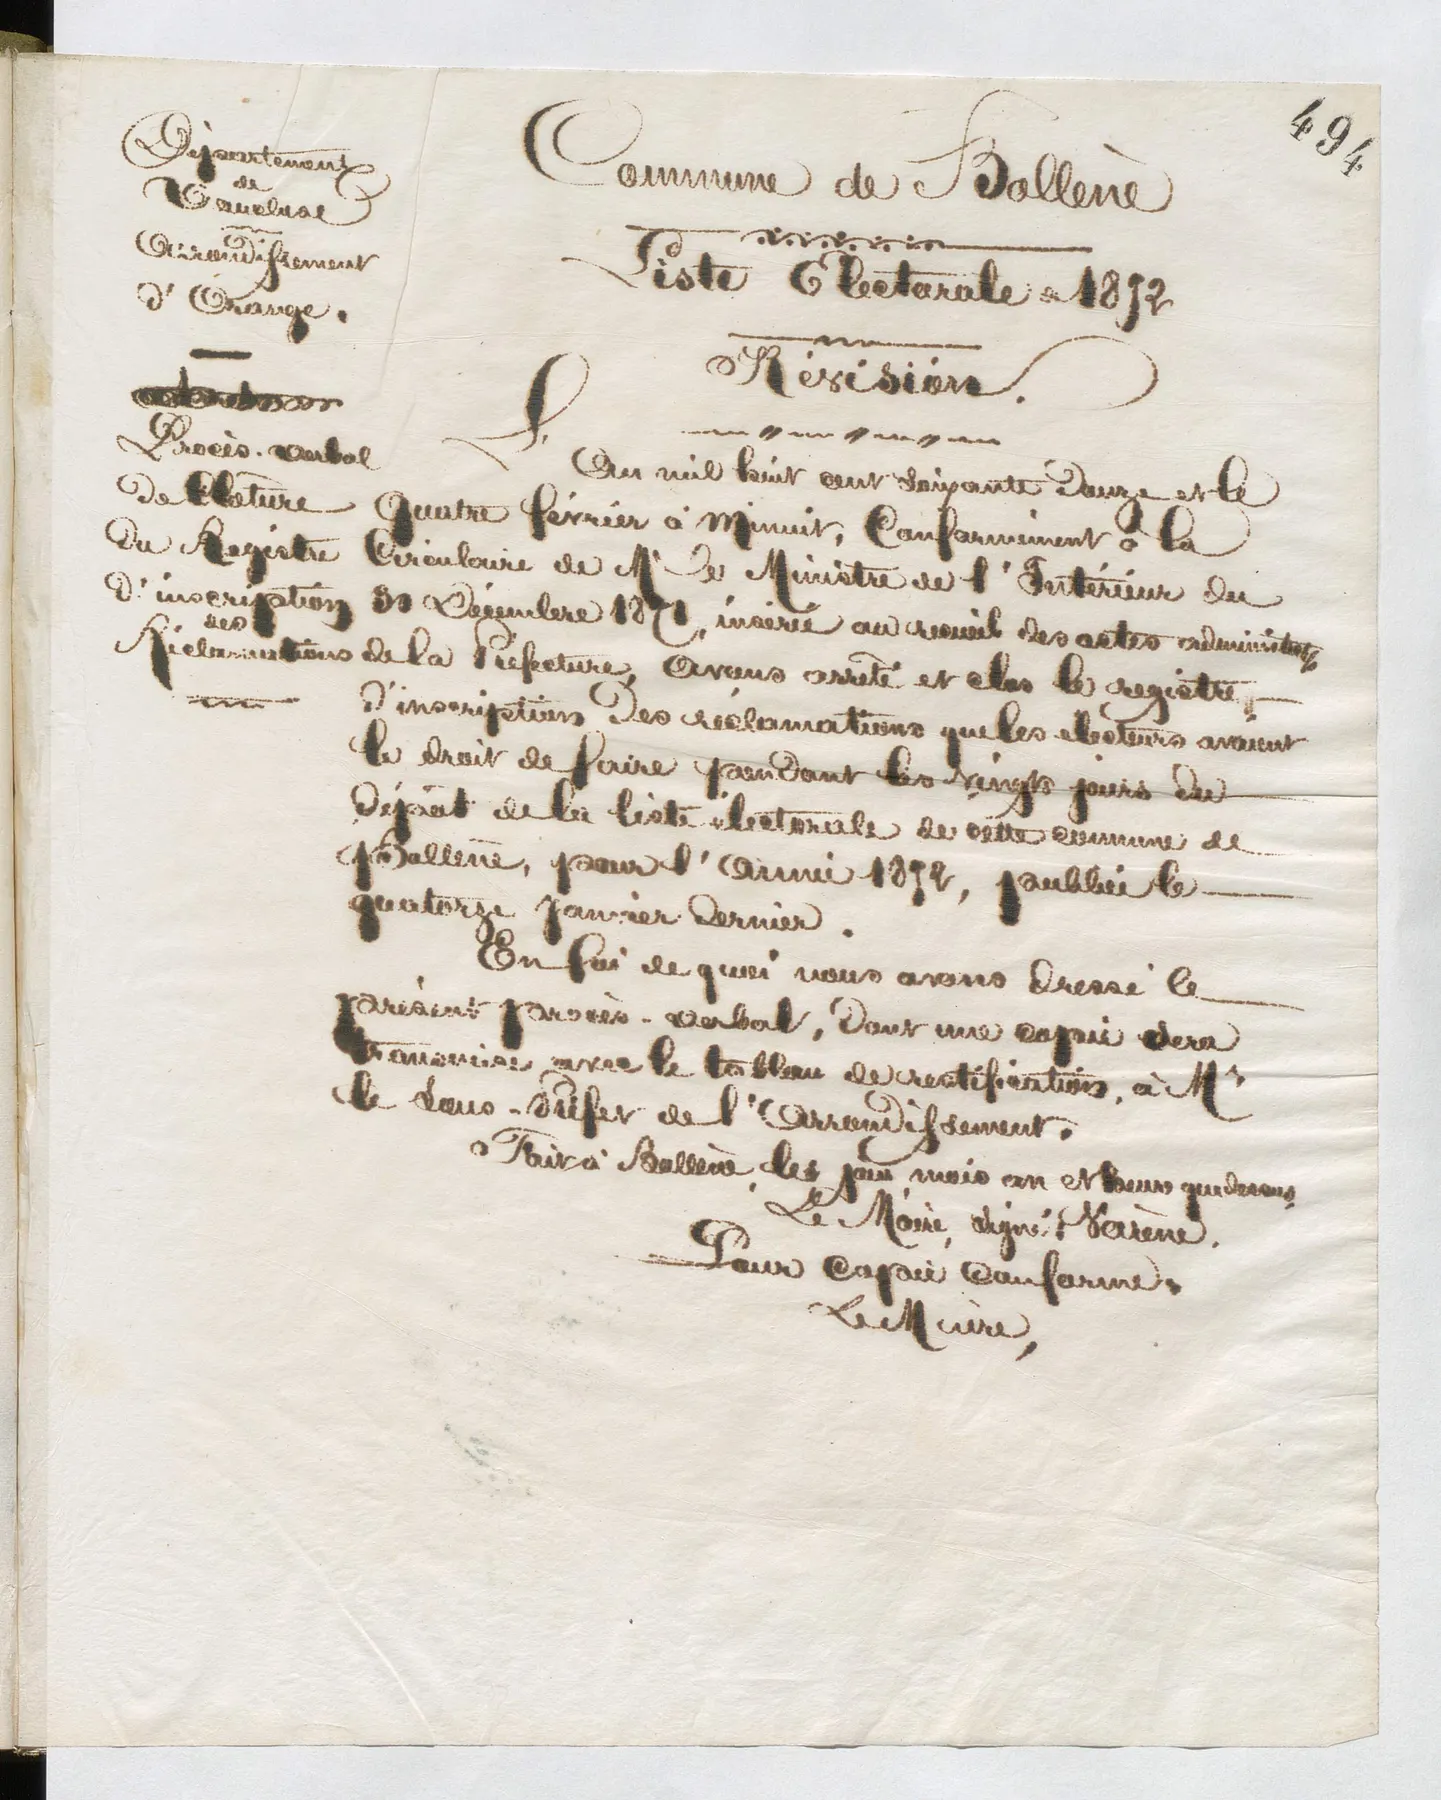 494
Département
de
Vaucluse
Arrondissement
d'Orange.
Commune de Bollène
Liste Electorale 1872
Révision.
Procès-verbal
de Cloture
du Registre
d'inscription
des
Réclamations
L'An mil huit cent soixante douze et le
Quatre février à Minuit, Conformément à la
Circulaire de Mr le Ministre de l'Intérieur du
30 Décembre 1871, insérée au recueil des actes administratifs
de la Préfecture, Avons arrêté et clos le registre
d'inscription des réclamations que les électeurs avaient
le droit de faire pendant les vingt jours du
dépôt de la liste électorale de cette commune de
Bollène, pour l'Année 1872, publiée le
quatorze Janvier dernier.
En foi de quoi nous avons dressé le
présent procès-verbal, dont une copie sera
transmise avec le tableau de rectification, à Mr
le Sous-Préfet de l'Arrondissement.
Fait à Bollène, les jour, mois an et heure que dessus,
Le Maire, signé:
Pour copie conforme,
Le Maire,